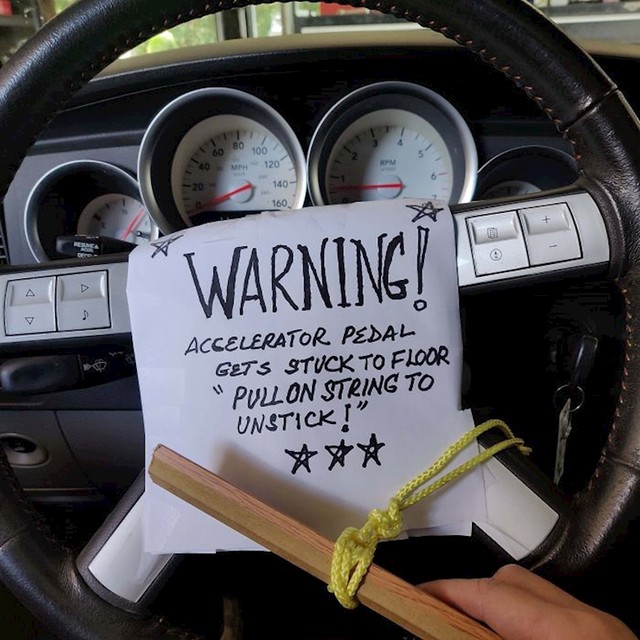 20 40 60 80 100 120 140 160
MPH
1 2 3 4 5 6
RPM
WARNING!
ACCELERATOR PEDAL
GETS STUCK TO FLOOR
"PULL ON STRING TO
UNSTICK!"